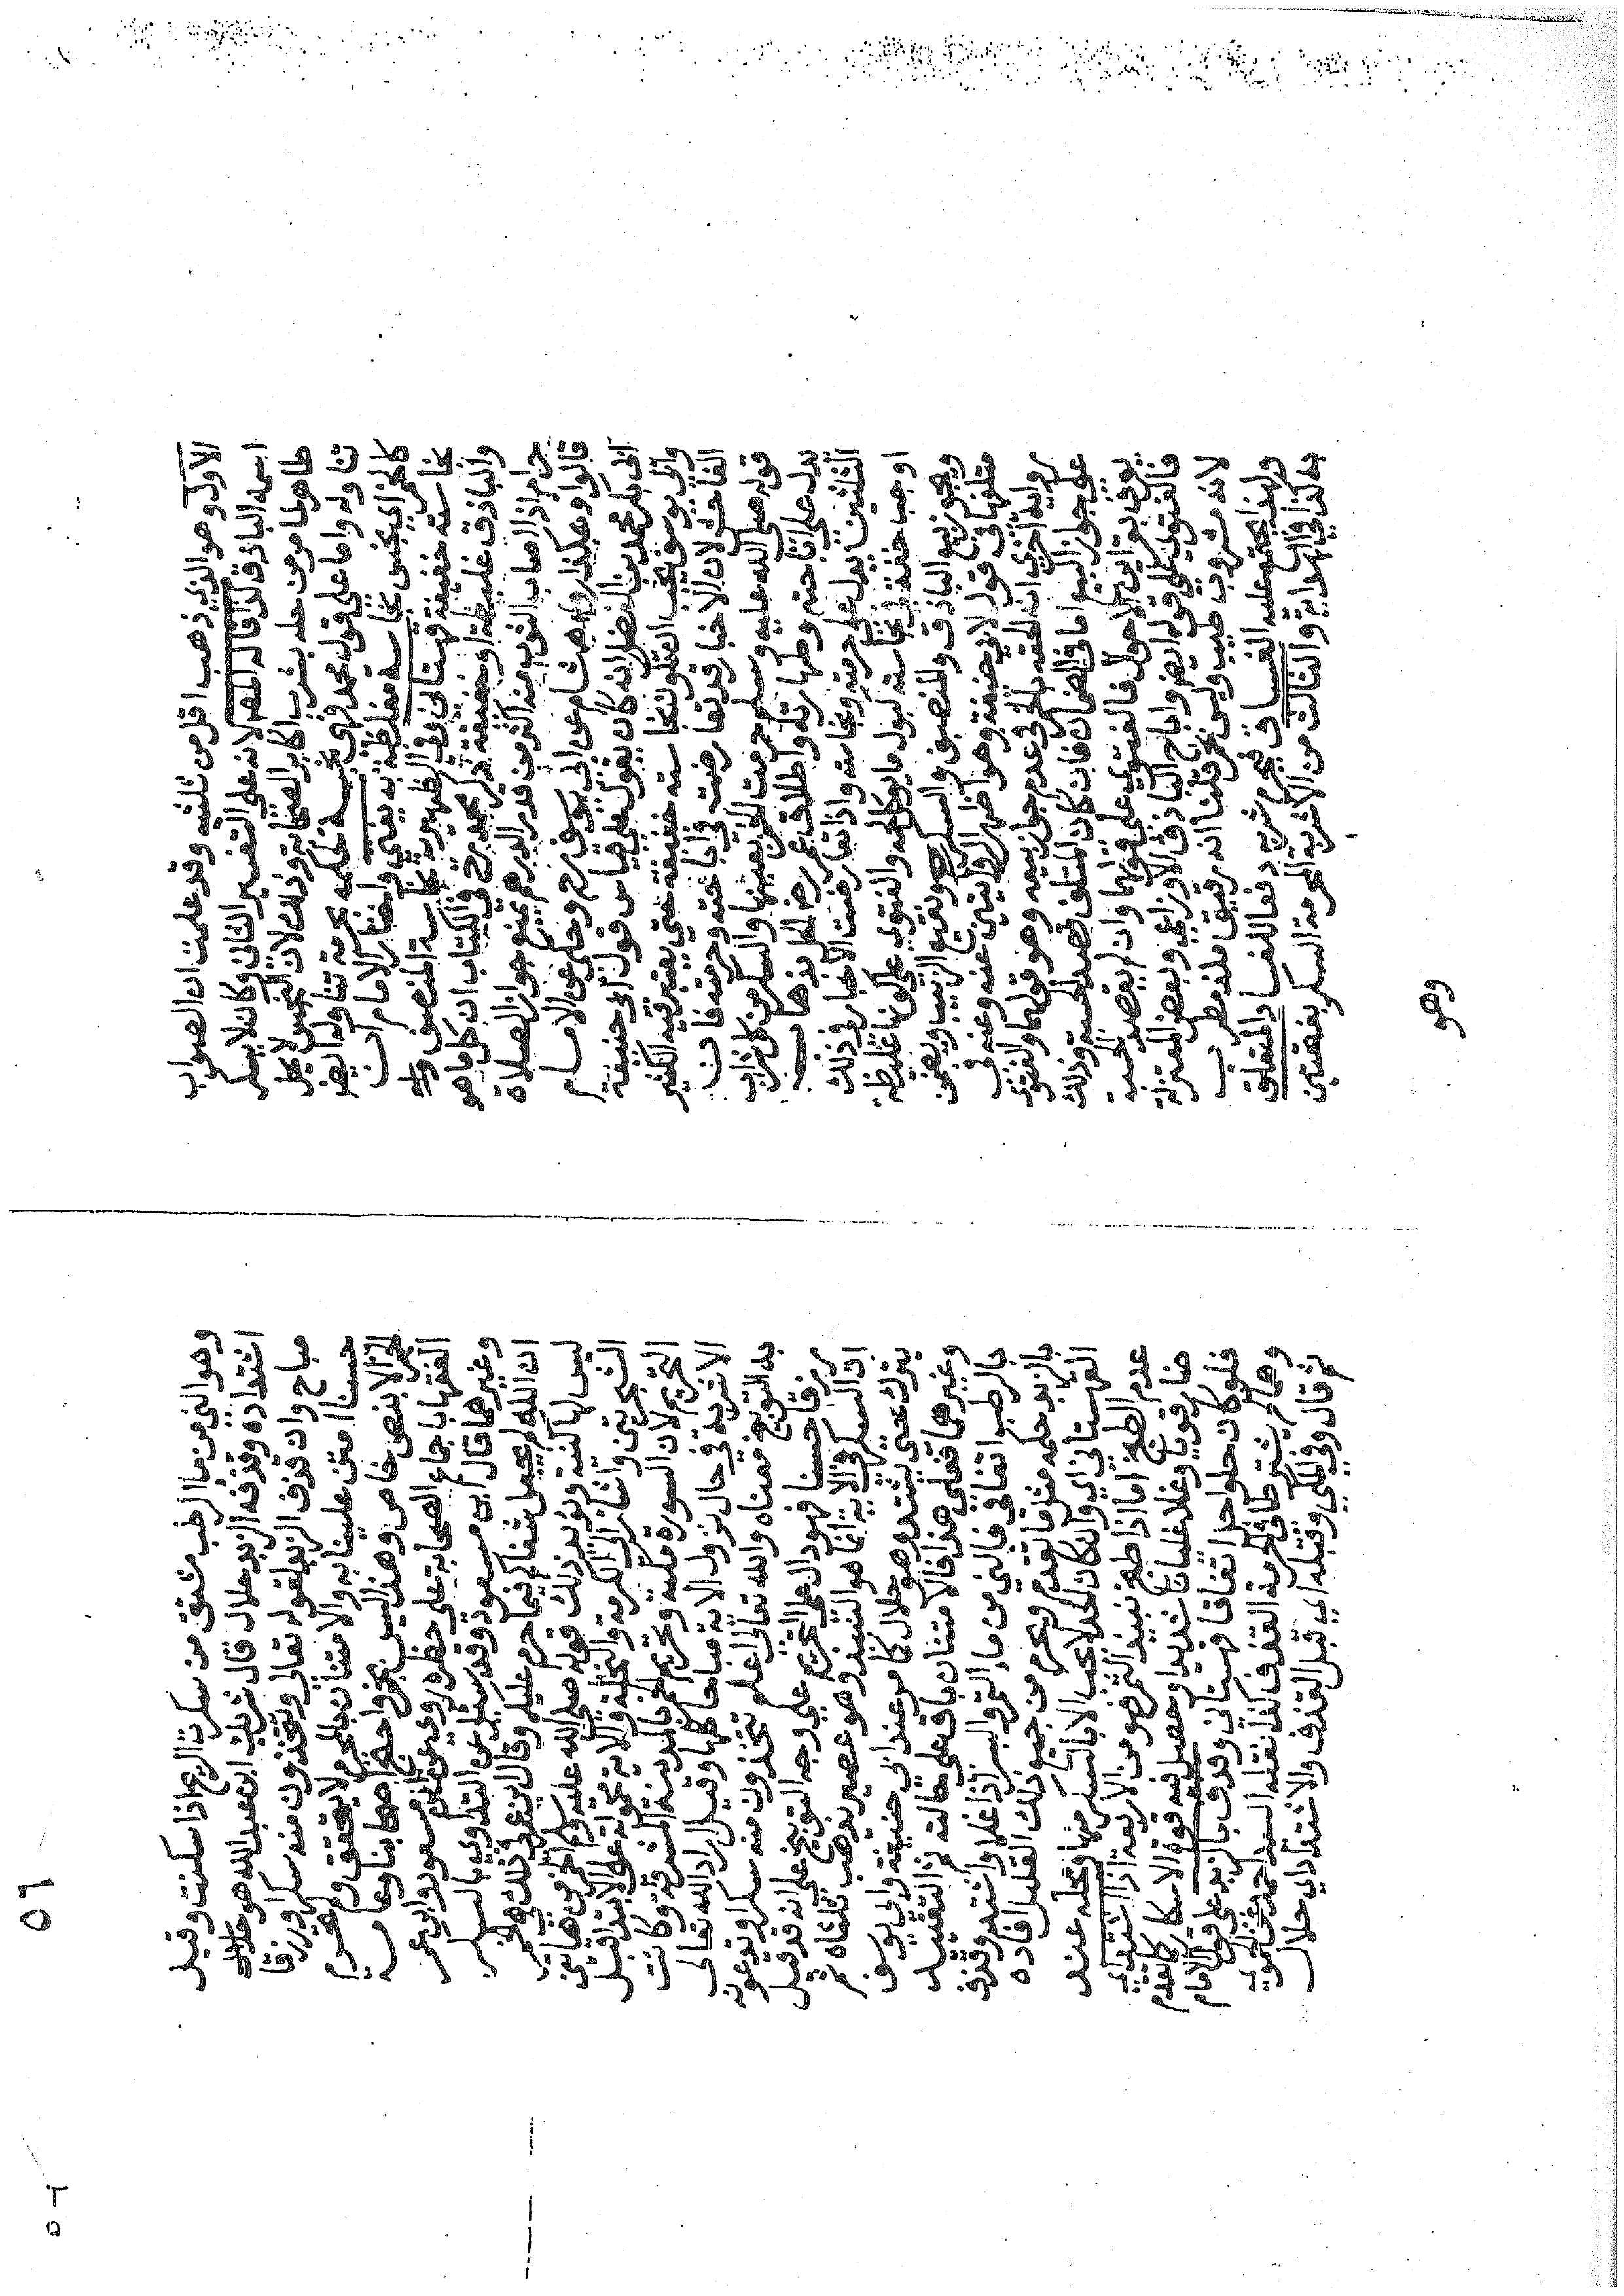 الاول وهو الذي ذهب اقل من ثلثيه وقد علمت ان الصواب
اسمه الباذق كذا قاله المصـ لانه على التفسير الثاني وكان لا يسكر
طاهر لما مر من حله بشرب اكابر الصحابة وذلك لان النجس لا يحل
تناوله واما على قول محمد فهي نجسة لحكمه بحرمة تناوله ايضا
كالخمر اي ينجس نجاسة مغلظة به يفتى واختار الامام ان
نجاسته خفيفة قهستاني وفي الظهيرية نجاسة المنصف
والباذق غليظة او خفيفة لم يذكر محمد رح في الكتاب ان كل ما هو
حرام اذا اصاب الثوب منه اكثر من قدر الدرهم يمنع جواز الصلاة
قالوا وهكذا روى هشام عن ابي يوسف رح وحكى عن الامام
ابي بكر محمد بن الفضل انه كان يقول على قياس قول ابي حنيفة
وابي يوسف يجب ان تكون نجاسته خفيفة حتى يعتبر فيه الكثير
الفاحش لان الاخبار قد تعارضت في اباحته وحرمته فان
قوله صلى الله عليه وسلم حرمت الخمر بعينها والسكر من كل شراب
يدل على اباحته وطهارته واطلاق عمر رضـ بذهاب
الثلثين يدل على حرمته ونجاسته واذا تعارضت الاخبار في ذلك
اوجب خفة في نجاسته كبول ما يوكل لحمه والفتوى على كونها غليظة
ويجوز بيع الباذق والمنصف والسكر ونقيع الزبيب ويضمن
متلفها في قول لابي حنيفة وهو اظهر الروايتين عنه وعنه في
رواية اخرى انه الحقه بالخمر في عدم جواز بيعه وهو قولهما والفتوى
على جواز البيع اما في الضمان فان كان المتلف قصد الحسبة وذلك
يعرف بقراين الاحوال فالفتوى على قولهما وان لم يقصد الحسبة
فالفتوى على قوله ايضـ واباح الباذق الاوزاعي وبعض المعتزلة
لانه مشروب طيب وليس بخمر قلنا انه رقيق ملذ مطرب
ولهذا يجتمع عليه الفساق فيحرم شربه دفعا للفساد المتعلق
به كذا في الهداية والثالث من الاشربة المحرمة السكر بفتحتين
وهو
٥٦
وهو الني من ماء الرطب مشتق من سكرت الريح اذا سكنت وقيل
اشتداده وقذفه الزبد حلال قال شريك ابن عبد الله هو حلال
مباح وان قذف الزبد لقوله تعالى وتتخذون منه سكرا ورزقا
حسنا امتن علينا به والامتنان بالمحرم لا يتحقق ولم يحرم
الخمر الا بنص خاص وهذا ليس بخمر واحتج اصحابنا وعامة
الفقها باجماع الصحابة على حظره روي عن ابن مسعود وابن عمر
وغيرهما قال ابن مسعود وقد سئل عن التداوي بالسكر
ان الله لم يجعل شفاكم فيما حرم عليكم وقال ابن عمر في ذلك هي الخمر
ليس لها كنية ويؤيد ذلك قوله صلى الله عليه وسلم الخمر من هاتين
الشجرتين واشار الى الكرمة والنخلة والاية محمولة على الابتدا قبل
التحريم لان السورة مكية وتحريم الخمر بالمدينة المشرفة وكانت
الاشربة في حال نزول الاية مباحا كلها وقيل اراد الله تعالى
به التوبيخ معناه والله تعالى اعلم تتخذون منه سكرا وتدعونه
رزقا حسنا فهو دال على التحريم على وجه التوبيخ على انه قد قيل
ان السكر في الاية انما هو النبيذ وهو عصير يذهب ثلثاه ثم
يترك حتى يشتد وهو حلال كما مر عند ابي حنيفة وابي يوسف
وغيرهما فعلى هذا فالامتنان باق على حالته ثم التقييد
بالرطب اتفاقي فالني من ماء التمر والبسر اذا غلا واشتد وقذف
بالزبد حكمه مثل ما تقدم ويحرم من جميع ذلك القليل افاده
القهستاني اي والكان الحد لا يجب الا بالسكر منها ومحله عند
عدم الطبخ اما اذا طبخ نبيذ التمر فهو من الاربعة اذا اشتد اي
صار قويا وغلا غليانا شديدا وحصل فيه قوة الاسكار كما تقدم
فلو كان حلوا حل اتفاقا قهستاني وقذف بالزبد على قول الامام
وهما لم يشترطا في الحرمة القذف كذا نقله السيد احمد الحموي
ثم قال وفي المكي وقبله اي قبل القذف والاشتداد اي حلال